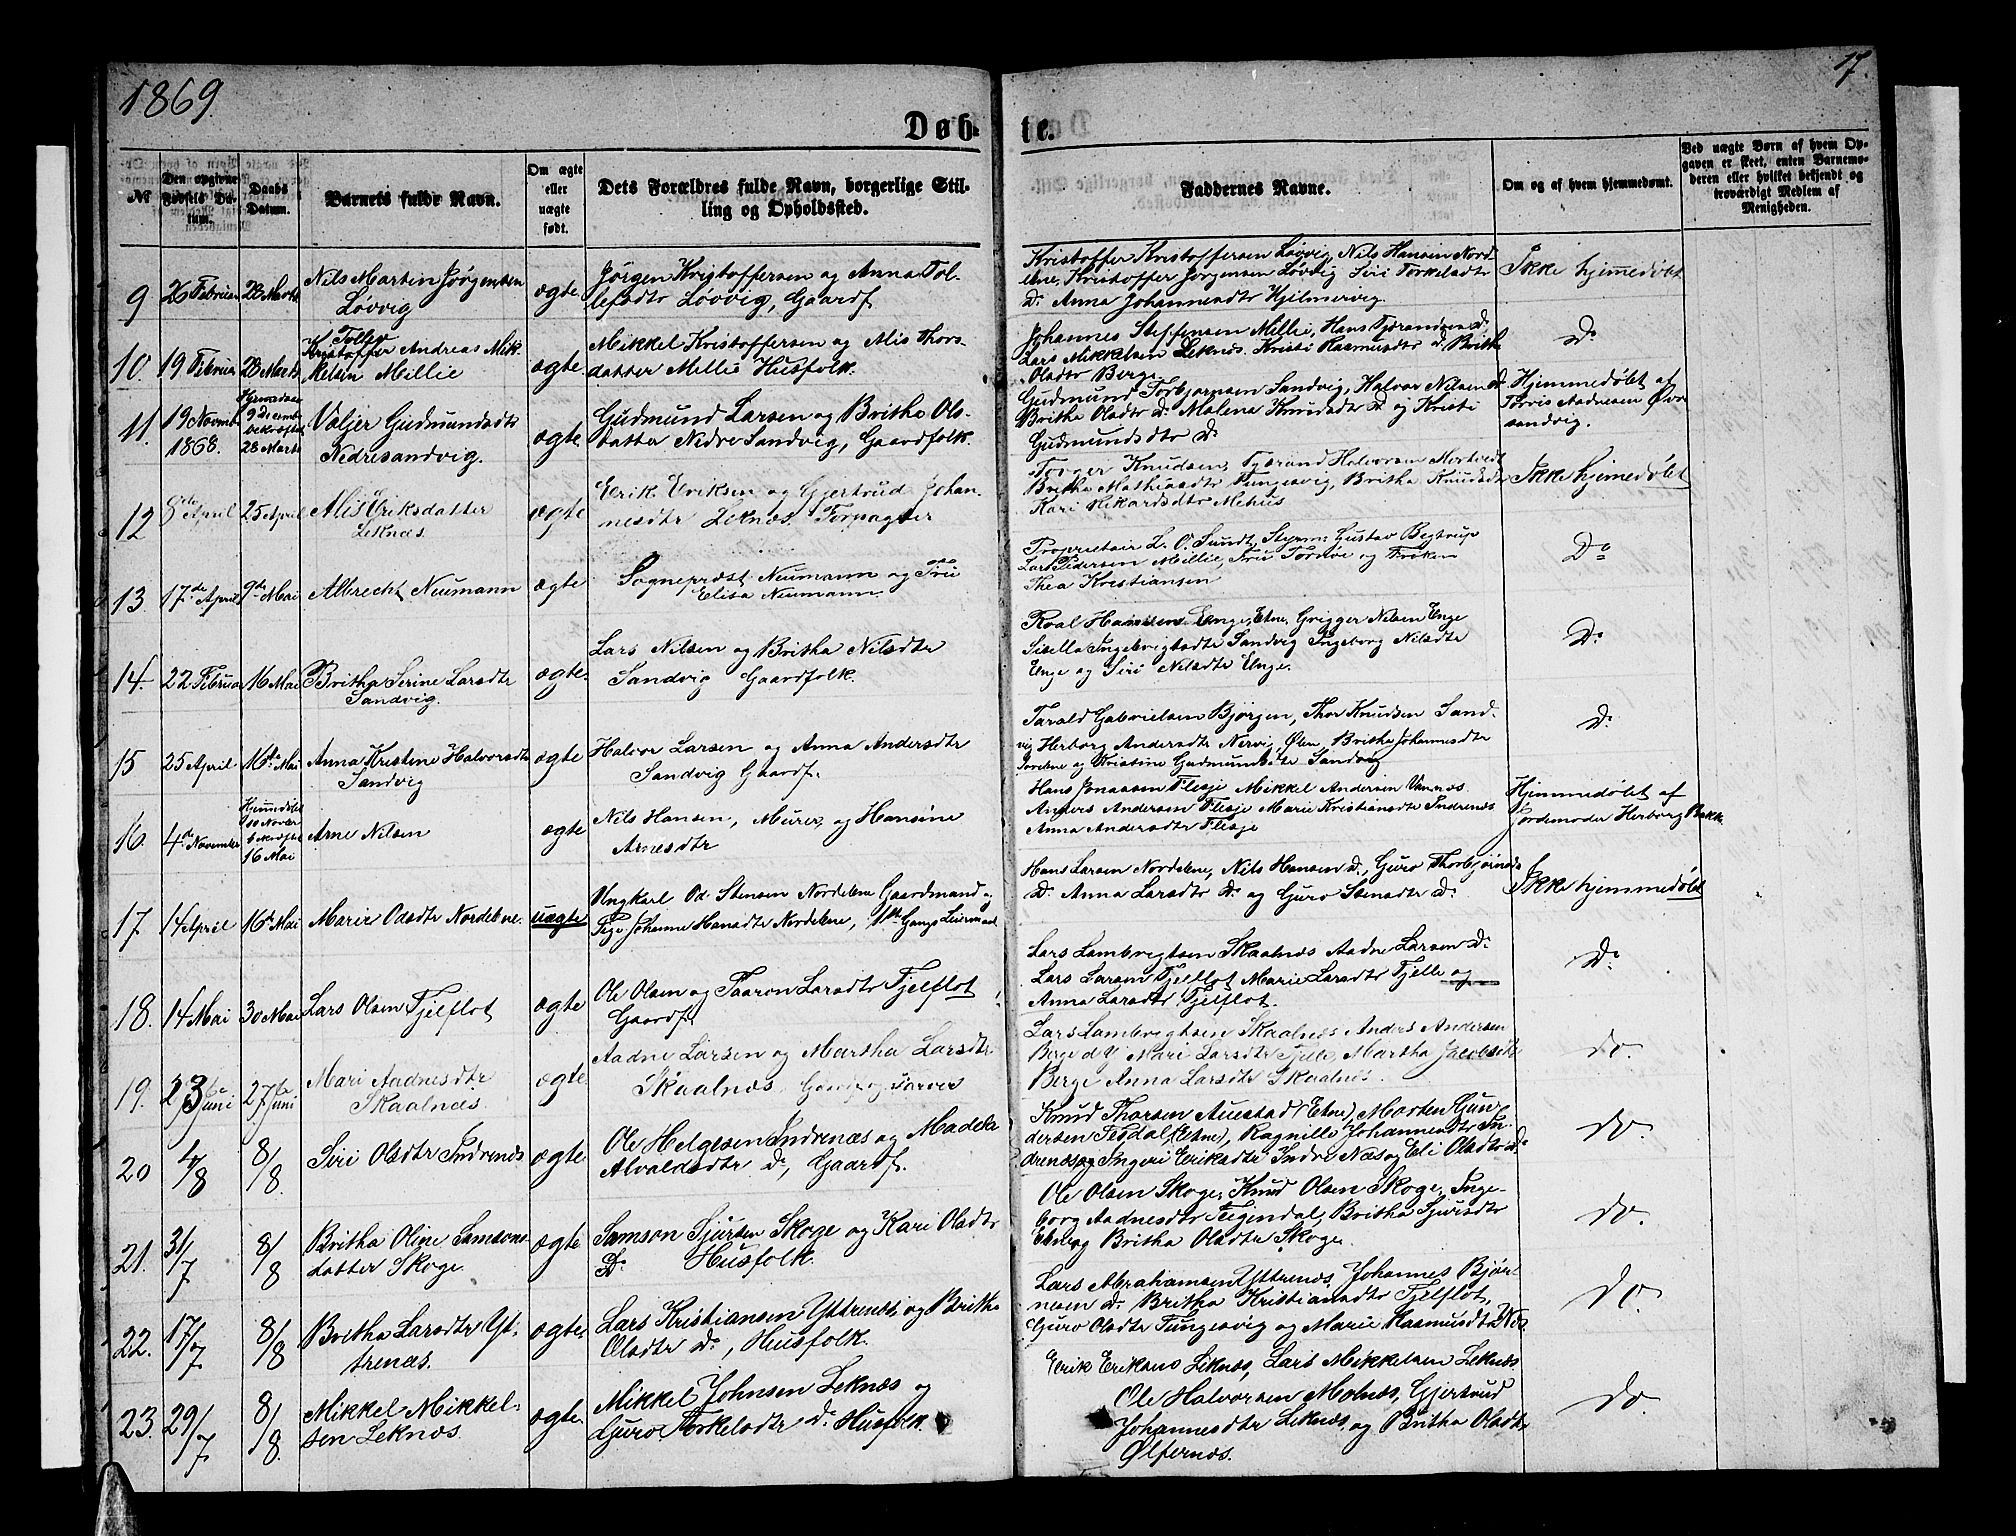 1869.
17.
Døbte.
№
Den opgivne Fødsels Datum.
Daabs Datum.
Barnets fulde Navn.
Om ægte eller uægte født.
Dets Forældres fulde Navn, borgerlige Stilling og Opholdssted.
Faddernes Navne.
Om og af hvem hjemmedømt.
Ved uægte Børn af hvem Opgaven er skeet, enten Barnemoderen eller hvilket bekjendt og troværdigt Medlem af Menigheden.
9
26 Februar
28 Marts
Nils Martin Jørgensen
Løvvig
ægte
Jørgen Kristoffersen og Anna Tol-
lefsdtr Løvvig, Gaardf.
Kristoffer Kristoffersen Løvvig, Nils Hansen Nord
elne, Kristoffer Jørgensen Løvvig Siri Torkelsdtr
Do Anna Johannesdtr Hjelmervig.
Ikke hjemmedøbt
10.
19 Februar
28 Marts
Tollev
Kristoffer Andreas Mik-
kelsen Millie
ægte
Mikkel Kristoffersen og Alis Thors-
datter Millie Husfolk.
Johannes Steffensen Millie, Hans Tjerandsen Do,
Lars Mikkelsen Leknæs. Kristi Rasmusdtr Do. Britha
Olsdtr Berge
Do
11.
19 Novemb
1868.
Hjemmedøbt
9 December
bekræftet
28 Marts
Valjer Gudmundsdtr
Nedresandvig.
ægte
Gudmund Larsen og Britha Ols-
datter Nedre Sandvig, Gaardfolk.
Gudmund Torbjørnsen Sandvig, Halvor Nilsen Do
Britha Olsdtr Do. Malena Knudsdtr Do og Kristi
Gudmundsdtr Do
Hjemmedøbt af
Torris Aadnesen Øvre
sandvig.
12
8de April
25 April
Alis Eriksdatter
Leknæs.
ægte
Erik Eriksen og Gjertrud Johan-
nesdtr Leknæs. Forpagter
Torger Knudsen, Tjerand Halvorsen Mortvedt
Britha Mathiasdtr Tungesvig, Britha Knudsdtr
Kari Rikardsdtr Mehus
Ikke hjemmedøbt
13.
17de April
9de Mai
Albrecht Neumann
ægte
Sognepræst Neumann og Fru
Elisa Neumann
Proprietair L. O. Sundt, Styrm: Gustav Begtrup
Lars Pedersen Millie, Fru Torsøe og Frøken
Thea Kristiansen
Do
14.
22 Februar
16 Mai
Britha Serine Larsdtr
Sandvig.
ægte.
Lars Nilsen og Britha Nilsdtr
Sandvig Gaardfolk.
Roal Hansen Enge, Etne, Grigger Nilsen Enge
Sisella Ingebrigtsdtr Sandvig Ingeborg Nilsdtr
Enge og Siri Nilsdtr Enge.
Do
15
25 April
16de Mai
Anna Kristine Halvorsdtr
Sandvig
ægte
Halvor Larsen og Anna Andersdtr
Sandvig Gaardf.
Tarald Gabrielsen Bjørgen, Thor Knudsen Sand-
vig Herborg Andersdtr Nervig Ølen, Britha Johannesdtr
og Kristine Gudmundsdtr Sandvig
Do
16.
4de November
Hjemmedøbt
10 Novbr
bekræftet
16 Mai
Arne Nilsen
ægte
Nils Hansen, Murer, og Hansine
Arnesdtr
Hans Jonassen Flesje Mikkel Andersen Vannæs
Anders Andersen Flesje Marie Kristiansdtr Indrenæs
Anna Andersdtr Flesje
Hjemmedøbt af
Jordemoder Herborg Bakke
17.
14 April
16de Mai
Marie Odsdtr Nordelne.
uægte
Ungkarl Od. Stensen Nordelene Gaardmand og
Pige Johanne Hansdtr Nordelene, 1ste Gangs Leiermaal
Hans Larsen Nordelene, Nils Hansen Do, Guro Thorbjørnsdr
Do. Anna Larsdtr Do og Guro Stensdtr Do.
Ikke hjemmedøbt
18.
14 Mai
30 Mai
Lars Olsen Fjelflot
ægte
Ole Olsen og Taaron Larsdtr Fjelflot
Gaardf.
Lars Lambregtsen Skaalnæs Aadne Larsen Do
Lars Larsen Fjelflot Marie Larsdtr Fjelle og
Anna Larsdtr Fjelflot.
Do
19.
23de Juni
27de Juni
Mari Aadnesdtr
Skaalnæs.
ægte
Aadne Larsen og Martha Larsdtr
Skaalnæs. Gaardf. og Farver
Lars Lambregtsen Skaalnæs Anders Andersen
Berge Mari Larsdtr Fjelle, Martha Jacobsdtr
Berge Anna Larsdtr Skaalnæs.
do.
20
4/8
8/8
Siri Olsdtr Indrenæs
ægte
Ole Helgesen Indrenæs og Madela
Alvaldsdtr Do, Gaardf.
Knud Thorsen Auestad (Etne), Morten Gun-
dersen Tesdal (Etne), Ragnille Johannesdtr In-
drenæs og Ingeri Eriksdtr Indre Næs og Eli Olsdtr do
do.
21.
31/7
8/8
Britha Oline Samsons
datter Skoge
ægte
Samson Sjursen Skoge og Kari Olsdtr
Do Husfolk.
Ole Olsen Skoge, Knud Olsen Skoge, Inge-
borg Aadnesdtr Teigendal, Britha Sjursdtr
Ebne og Britha Olsdtr Skoge.
do.
22.
17/7
8/8
Britha Larsdtr Yt-
trenæs.
ægte
Lars Kristiansen Yttrenæs og Britha
Olsdtr Do, Husfolk.
Lars Abrahamsen Yttrenæs, Johannes Bjør-
nesen Do Britha Kristiansdtr Fjelflot,
Guro Olsdtr Tungesvig og Marie Rasmusdt Næs.
do.
23.
29/7
8/8
Mikkel Mikkel-
sen Leknæs.
ægte.
Mikkel Johnsen Leknæs og
Guro Torkelsdtr Do Husfolk
Erik Eriksen Leknæs, Lars Mikkelsen Leknæs
Ole Halvorsen Molnæs, Gjertrud
Johannesdtr Leknæs, og Britha Olsdtr
Ølfernæs.
do.